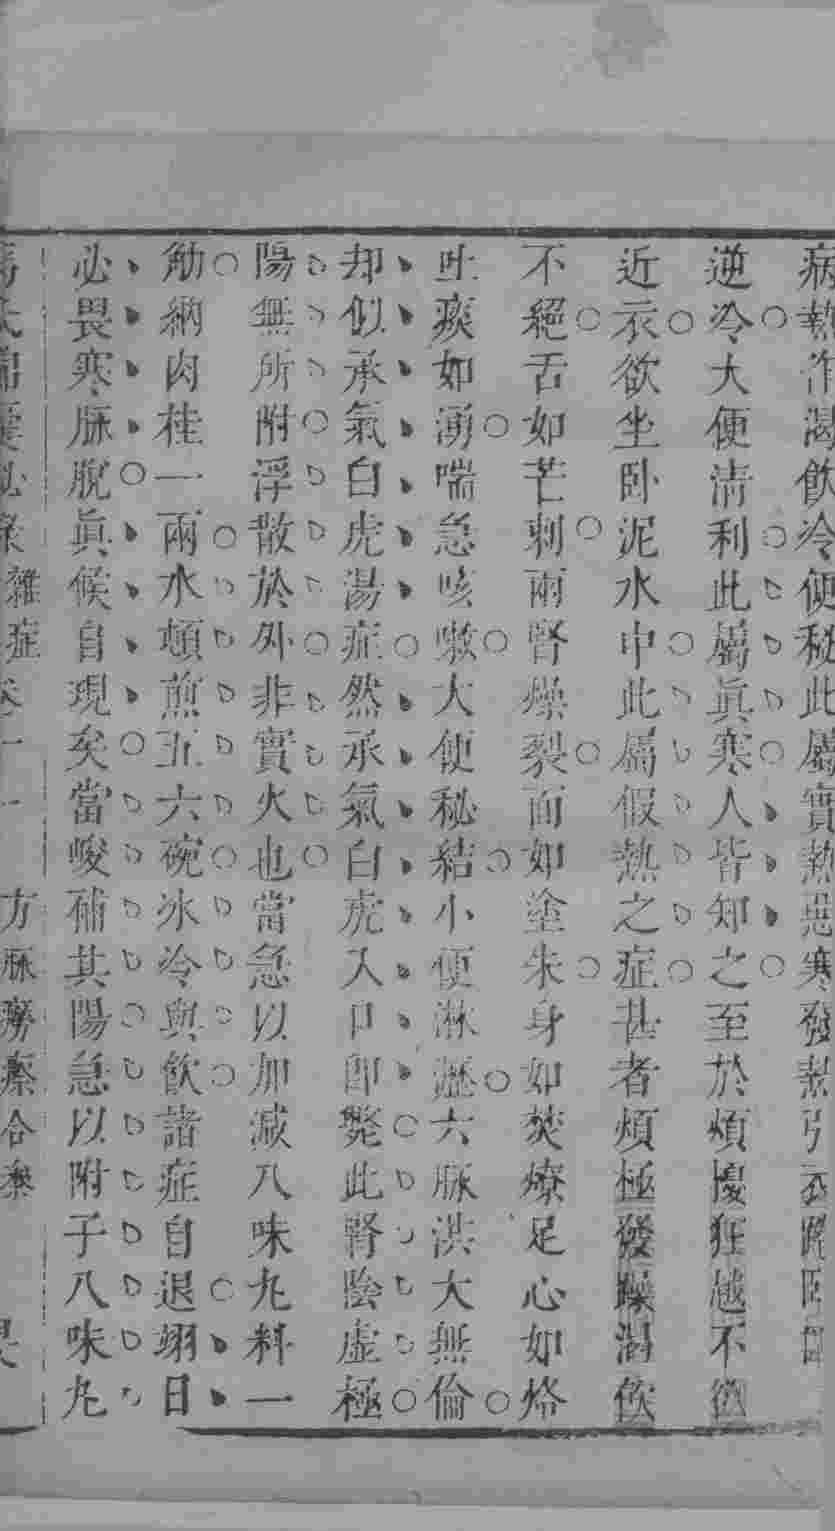 病熱作渴飲冷便秘此屬實熱惡寒發熱引衣踡臥
逆冷大便清利此屬眞寒人皆知之至於煩擾狂越不欲
近衣欲坐卧泥水中此屬假熱之症甚者煩極發躁渴飲
不絕舌如芒刺兩唇燥裂面如塗朱身如焚燎足心如烙
吐痰如湧喘急咳嗽大便秘結小便淋瀝六脉洪大無倫
却似承氣白虎湯症然承氣白虎入口即斃此腎陰虛極
陽無所附浮散於外非實火也當急以加減八味丸料一
觔納肉桂一兩水頓煎五六碗氷冷與飲諸症自退翊日
必畏寒脉脫眞候自現矣當峻補其陽急以附子八味丸
馮氏錦囊秘錄雜症卷十一 方脉癆瘵合叅